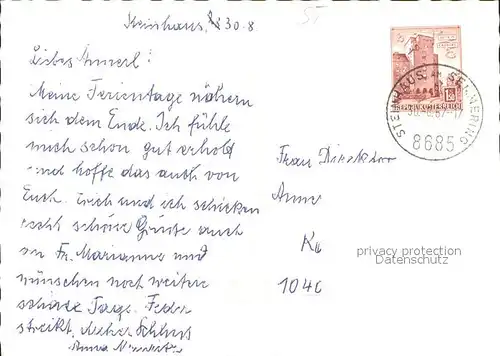 Steinhaus, 30.8
Liebes Annerl!
Meine Ferientage nähern
sich dem Ende. Ich fühle
mich schon gut erholt
und hoffe das auch von
Euch. Erich und ich schicken
recht schöne Grüße auch
an Fr. Marianne und
wünschen noch weitere
schöne Tage. Feder
streikt, daher Schluß
Anna
Frau Direktor
Anna
1040
REPUBLIK ÖSTERREICH
STEINHAUS AM SEMMERING
8685
privacy protection
Datenschutz